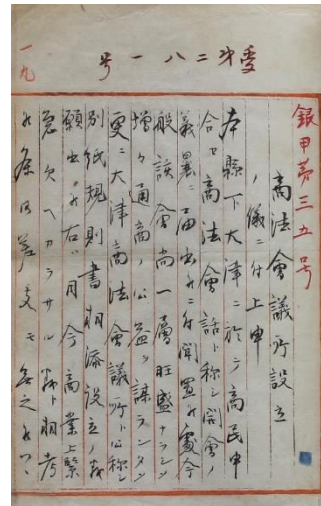 受第二八一号
一九
銀甲第三五号
商法會議所設立
ノ儀ニ付上申
本縣下大津ニ於テ商民申
合セ商法會話ト称シ開會ノ
義曩ニ届出候ニ付聞置候處今
般該會尚一層旺盛ナラシメ
増々通商ノ公益ヲ謀ランタメ
更ニ大津商法會議所ト公称シ
別紙規則書相添設立ノ義
願出候右ハ目今商業上緊
急欠ヘカラサル義ト相考
候条何差支モ無之候ハヽ